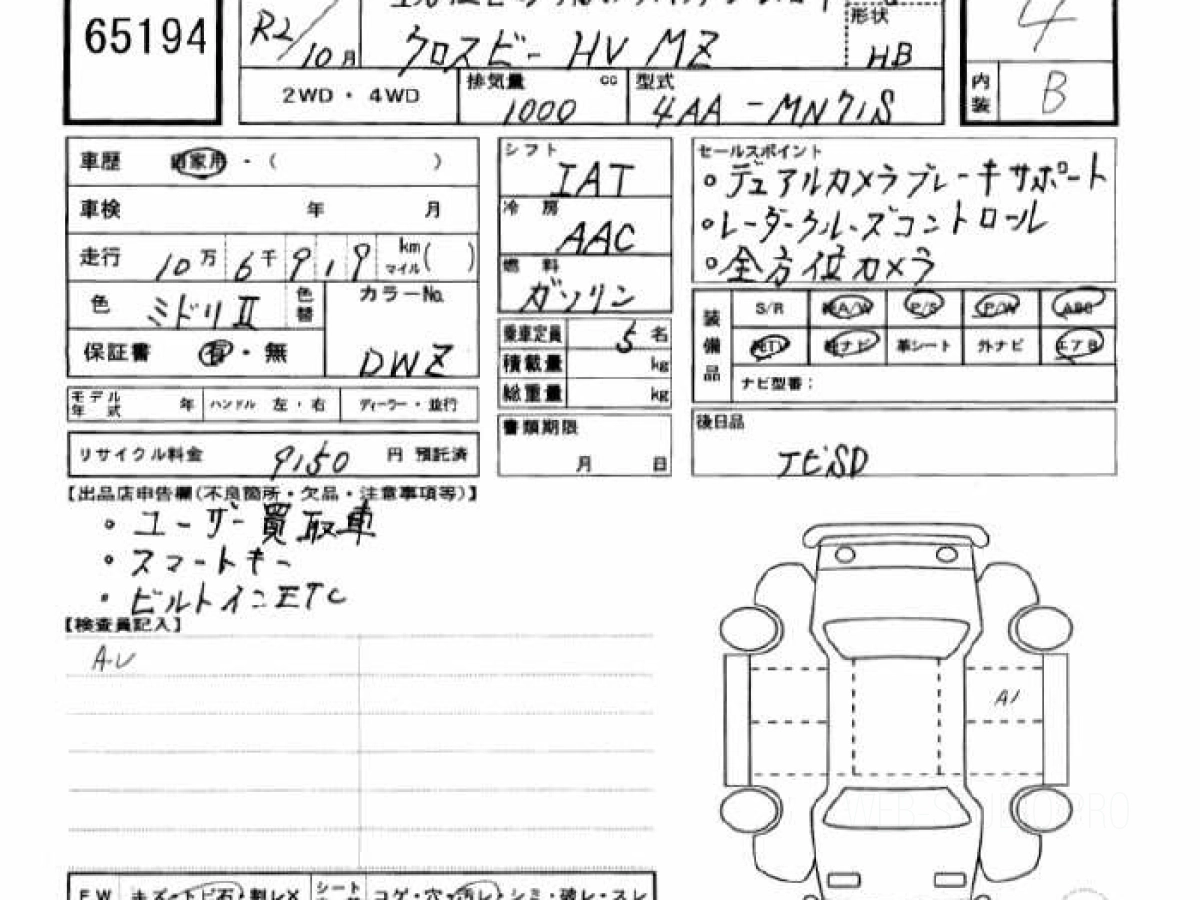 65194
R2/10月
クロスビー HV MZ
形状
HB
4
2WD・4WD
排気量 cc
1000
型式
4AA-MN71S
内装
B
車歴 自家用・( )
車検 年 月
走行 10万6千919 km マイル( )
色 ミドリII 色替
カラーNo.
DWZ
保証書 有・無
モデル年式 年 ハンドル 左・右 ディーラー・並行
リサイクル料金 9150 円 預託済
シフト
IAT
冷房
AAC
燃料
ガソリン
乗車定員 5名
積載量 kg
総重量 kg
書類期限
月 日
セールスポイント
・デュアルカメラブレーキサポート
・レーダークルーズコントロール
・全方位カメラ
装備品
S/R 純A/W P/S P/W ABS
純TV 純ナビ 革シート 外ナビ エアB
ナビ型番：
後日品
ナビSD
【出品店申告欄(不良箇所・欠品・注意事項等)】
・ユーザー買取車
・スマートキー
・ビルトインETC
【検査員記入】
A・U
A1
FW キズ・トビ石・割レX シート コゲ・穴・汚レ・シミ・破レ・スレ